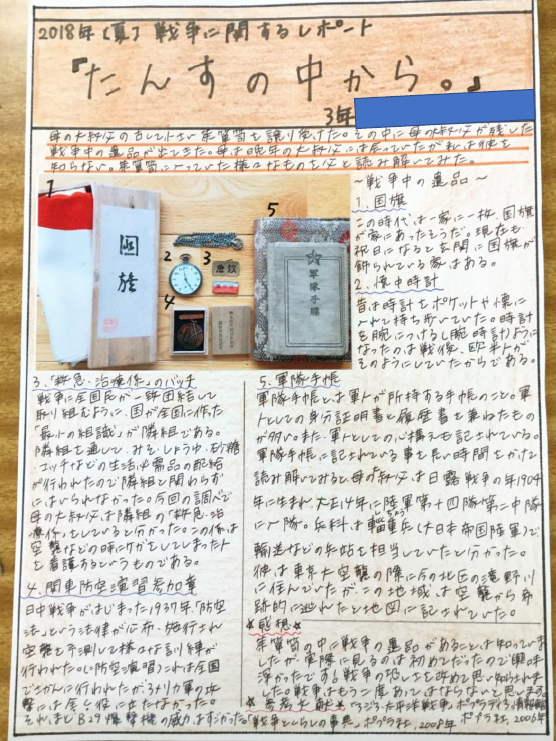 2018年〔夏〕戦争に関するレポート
『たんすの中から。』
3年
母の大叔父の古くて小さい茶箪笥を譲り受けた。その中に母の大叔父が残した
戦争中の遺品が出てきた。母は晩年の大叔父には会っていたが私は彼を
知らない。茶箪笥に入っていた様々なものを父と読み解いてみた。
〜戦争中の遺品〜
1
2
3
4
5
國旗
救护
軍隊手牒
1. 国旗
この時代は一家に一枚、国旗
が家にあったそうだ。現在も
祝日になると玄関に国旗が
飾られている家はある。
2. 懐中時計
昔は時計をポケットや懐に
入れて持ち歩いていた。時計
を腕につける(腕時計)ように
なったのは戦後、欧米人が
そのようにしていたからである。
3.「救急・治療係」のバッチ
戦争に全国民が一致団結して
取り組むように、国が全国に作った
「最小の組織」が隣組である。
隣組を通して、みそ、しょうゆ、砂糖、
マッチなどの生活必需品の配給
が行われたので隣組と関わらず
にはいられなかった。今回の調べで
母の大叔父は隣組の「救急・治
療係」をしていると分かった。この係は
空襲などの時にケガをしてしまった人
を看護するというものである。
4. 関東防空演習参加章
日中戦争がはじまった1937年、「防空
法」という法律が公布・施行され
空襲を予測して様々な訓練が
行われた。(=防空演習)これは全国
でさかんに行われたがアメリカ軍の攻
撃には全く役に立たなかった。
それほどB29爆撃機の威力はすごかった
5. 軍隊手帳
軍隊手帳とは軍人が所持する手帳のこと。軍
人としての身分証明書と履歴書を兼ねたもの
が多い。また、軍人としての心構えも記されている。
軍隊手帳に記されている事を長い時間をかけて
読み解いてみると、母の大叔父は日露戦争の年1904
年に生まれ、大正14年に陸軍第十四隊第二中隊
に入隊。兵科は輜重兵(大日本帝国陸軍)で
輸送などの兵站を担当していたと分かった。
彼は東京大空襲の際に今の北区の滝野川
に住んでいたが、この地域は空襲から奇
跡的に逃れたと地図に記されていた。
☆感想☆
茶箪笥の中に戦争の遺品があることは知っていま
したが、実際に見るのは初めてだったので興味
深かったです。戦争の恐しさを改めて思い知らされま
した。戦争はもう二度あってはならないと思います。
☆参考文献☆「アジア・太平洋戦争」、ポプラディア情報館
ポプラ社、2006年
「戦争とくらしの事典」、ポプラ社、2008年